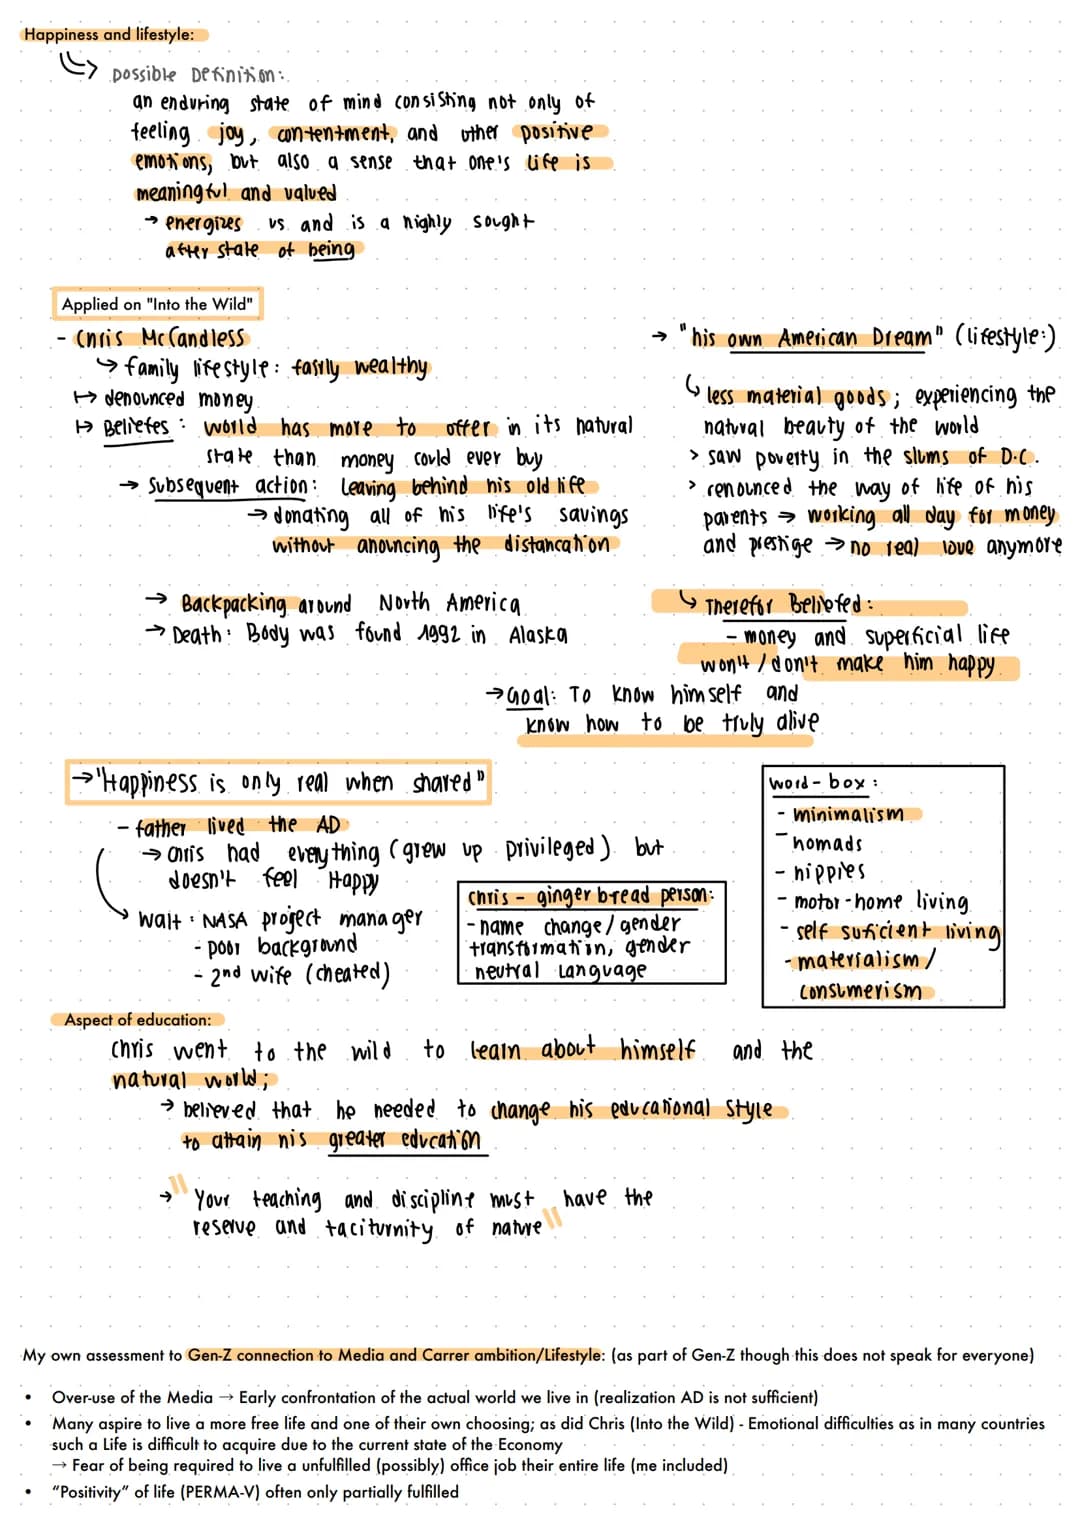 Happiness and lifestyle:
Possible Definition:
an enduring state of mind consisting not only of
feeling joy, contentment, and other positive
emotions, but also a sense that one's life is
meaningful and valued
→ energizes us and is a highly sought
after state of being
Applied on "Into the Wild"
- Chris McCandless
↳ family lifestyle: fairly wealthy
↦ denounced money
↦ Beliefes: world has more to offer in its natural
state than money could ever buy
→ Subsequent action: Leaving behind his old life
→ donating all of his life's savings
without anouncing the distancation
→ Backpacking around North America
→ Death: Body was found 1992 in Alaska
→ "his own American Dream" (lifestyle:)
↳ less material goods; experiencing the
natural beauty of the world
> saw poverty in the slums of D.C.
> renounced the way of life of his
parents → working all day for money
and prestige → no real love anymore
↳ Therefor Beliefed:
- money and superficial life
won't / don't make him happy
→ Goal: To know himself and
know how to be truly alive
→ "Happiness is only real when shared"
- father lived the AD
→ Chris had everything (grew up privileged) but
doesn't feel Happy
Walt: NASA project manager
- poor background
- 2nd wife (cheated)
Chris - ginger bread person:
- name change/gender
transformation, gender
neutral language
word-box:
- minimalism
- nomads
- hippies
- motor-home living
- self suficient living
- materialism/
consumerism
Aspect of education:
Chris went to the wild to learn about himself and the
natural world;
→ believed that he needed to change his educational style
to attain his greater education
→ "Your teaching and discipline must have the
reserve and taciturnity of nature"
My own assessment to Gen-Z connection to Media and Carrer ambition/Lifestyle: (as part of Gen-Z though this does not speak for everyone)
• Over-use of the Media → Early confrontation of the actual world we live in (realization AD is not sufficient)
• Many aspire to live a more free life and one of their own choosing; as did Chris (Into the Wild) - Emotional difficulties as in many countries
such a Life is difficult to acquire due to the current state of the Economy
→ Fear of being required to live a unfulfilled (possibly) office job their entire life (me included)
• "Positivity" of life (PERMA-V) often only partially fulfilled